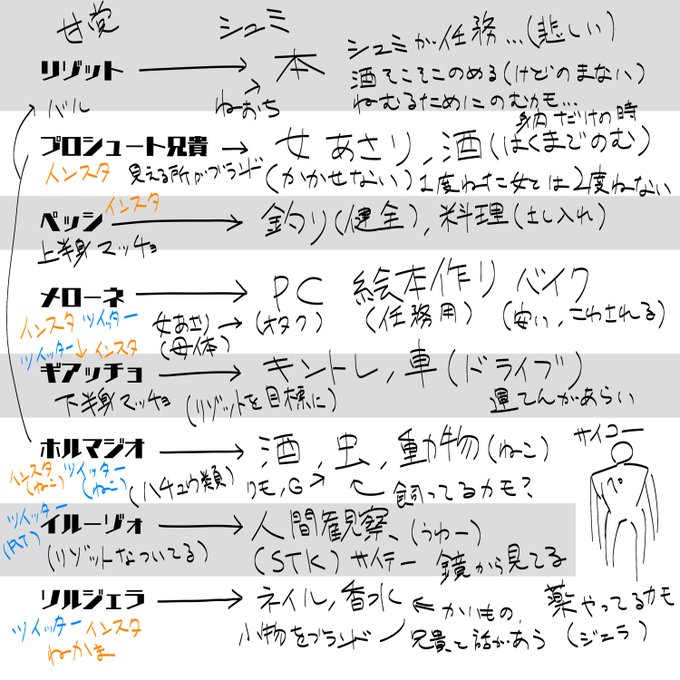 甘党 シュミ
シュミが任務…(悲しい)
リゾット → 本
酒そこそこのめる(けどのまない)
バル ねおち ねむるためにのむカモ…
身内だけの時
プロシュート兄貴 → 女あさり,酒(はくまでのむ)
インスタ 見える所がブランド (かかせない) 1度ねた女とは2度ねない
ペッシ インスタ → 釣り(健全),料理(土し入れ)
上半身マッチョ
メローネ → PC 絵本作り バイク
インスタ ツイッター 女あさり → (オタク) (任務用) (安い,こわされる)
(母体)
ツイッター→インスタ
ギアッチョ → キントレ,車(ドライブ)
下半身マッチョ (リゾットを目標に) 運てんがあらい
ホルマジオ → 酒,虫,動物(ねこ) サイコー
インスタ(ねこ) ツイッター(ねこ) (ハチュウ類) クモ,G → ← 飼ってるカモ?
ペ
イルーゾォ → 人間観察、(うわー)
ツイッター(RT) (リゾットなついてる) (STK) サイテー 鏡から見てる
ソルジェラ → ネイル,香水 ⇐ かいもの, 薬やってるカモ
ツイッター インスタ 小物をブランド 兄貴と話があう (ジェラ)
ねかま